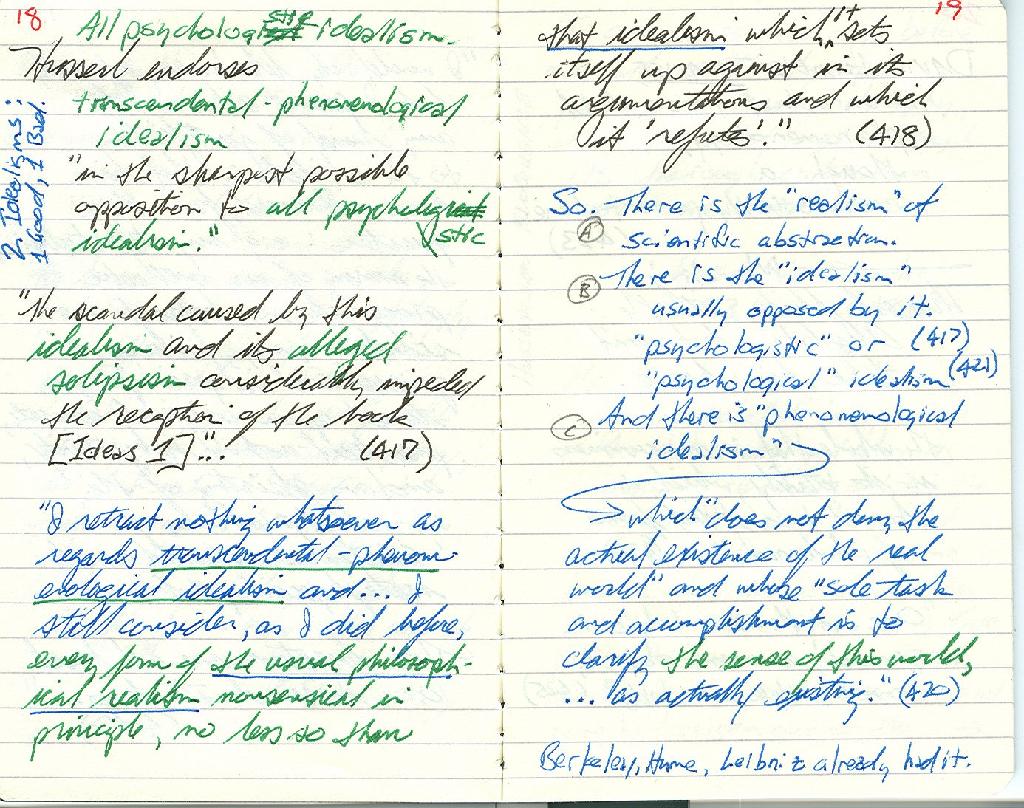 18
All psychologistic idealism.
Husserl endorses
transcendental-phenomenological
idealism
2 Idealisms:
1 Good, 1 Bad.
"in the sharpest possible
opposition to all psychologistic
idealism."
"the scandal caused by this
idealism and its alleged
solipsism considerably impeded
the reception of the book
[Ideas 1]"... (417)
"I retract nothing whatsoever as
regards transcendental-phenom-
enological idealism and... I
still consider, as I did before,
every form of the usual philosoph-
ical realism nonsensical in
principle, no less so than
19
that idealism which it sets
itself up against in its
argumentations and which
it 'refutes'." (418)
So. There is the "realism" of
A scientific abstraction.
B There is the "idealism"
usually opposed by it.
"psychologistic" or (417)
"psychological" idealism (421)
C And there is "phenomenological
idealism"
which "does not deny the
actual existence of the real
world" and whose "sole task
and accomplishment is to
clarify the sense of this world,
... as actually existing." (420)
Berkeley, Hume, Leibniz already had it.